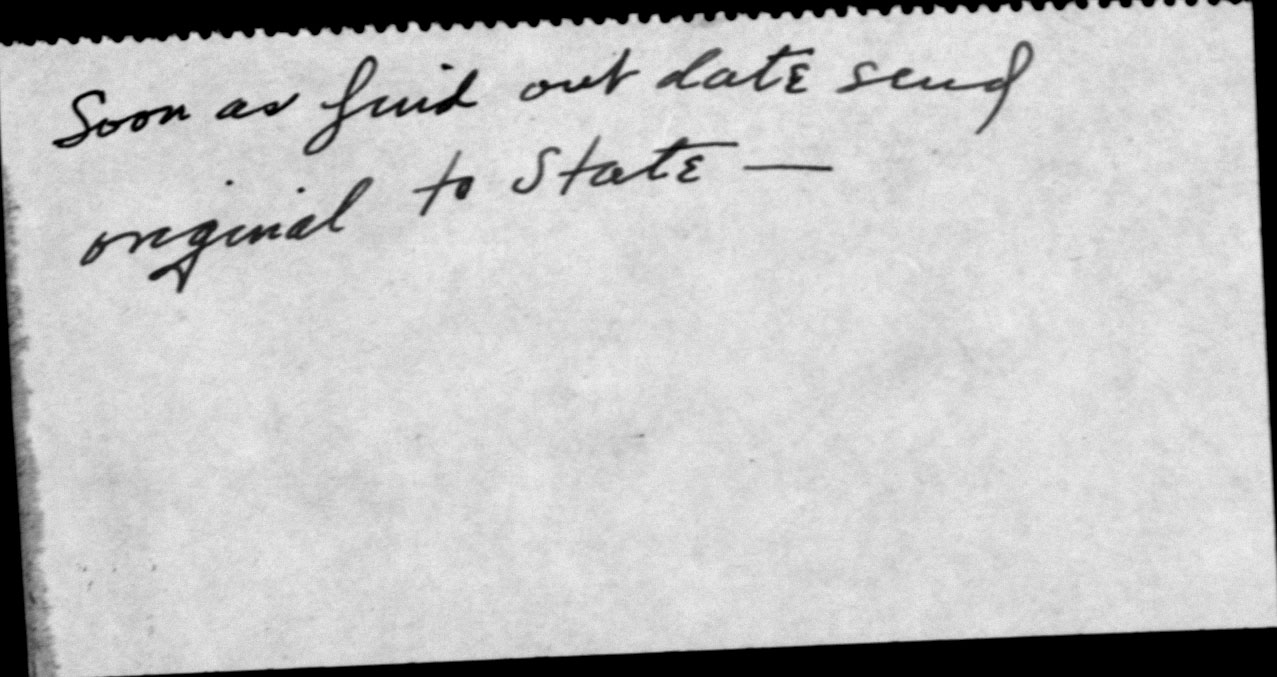 Soon as find out date send
original to State —